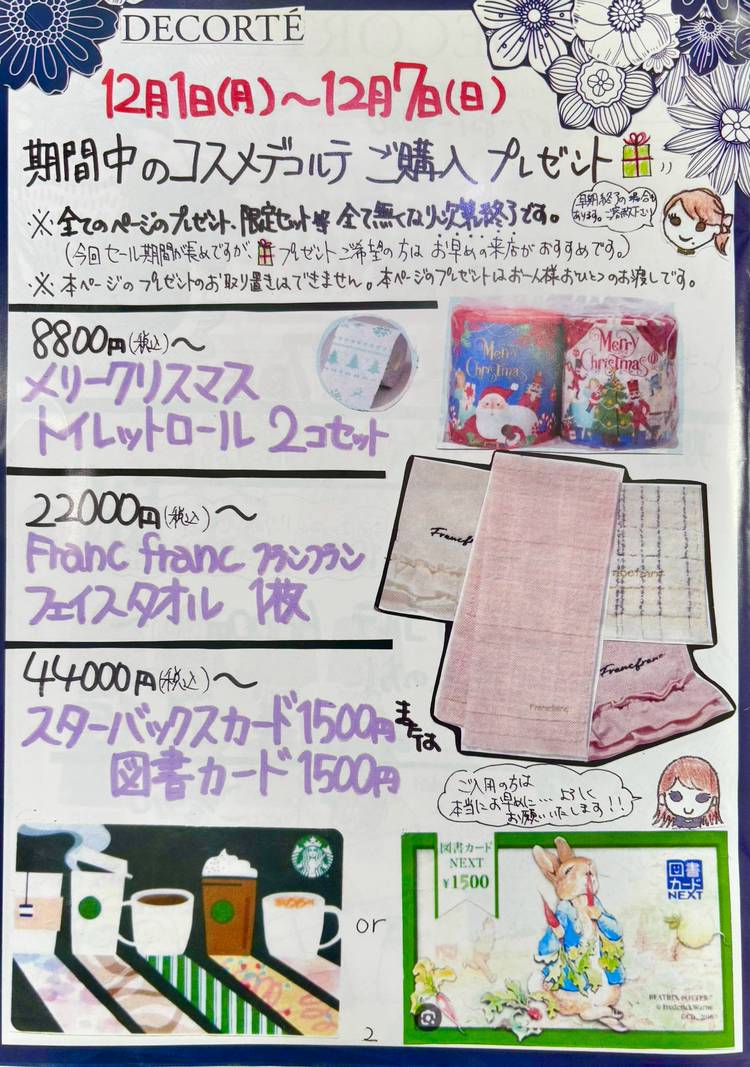 DECORTÉ
12月1日(月)～12月7日(日)
期間中のコスメデコルテ ご購入 プレゼント
早期終了の場合も
あります。ご容赦下さい
※全てのページのプレゼント、限定セット等 全て無くなり次第終了です。
(今回セール期間が長めですが、プレゼントご希望の方は お早めの来店がおすすめです。)
※本ページのプレゼントのお取り置きはできません。本ページのプレゼントはお一人様おひとつのお渡しです。
8800円(税込)～
メリークリスマス
トイレットロール 2コセット
Merry Christmas
Merry Christmas
22000円(税込)～
Franc franc フランフラン
フェイスタオル 1枚
Francfranc
Francfranc
44000円(税込)～
スターバックスカード1500円 または
図書カード1500円
ご入用の方は
本当にお早めに…よろしく
お願いいたします!!
or
図書カード
NEXT
¥1500
図書
カード
NEXT
BEATRIX POTTER™
© Frederick Warne
2